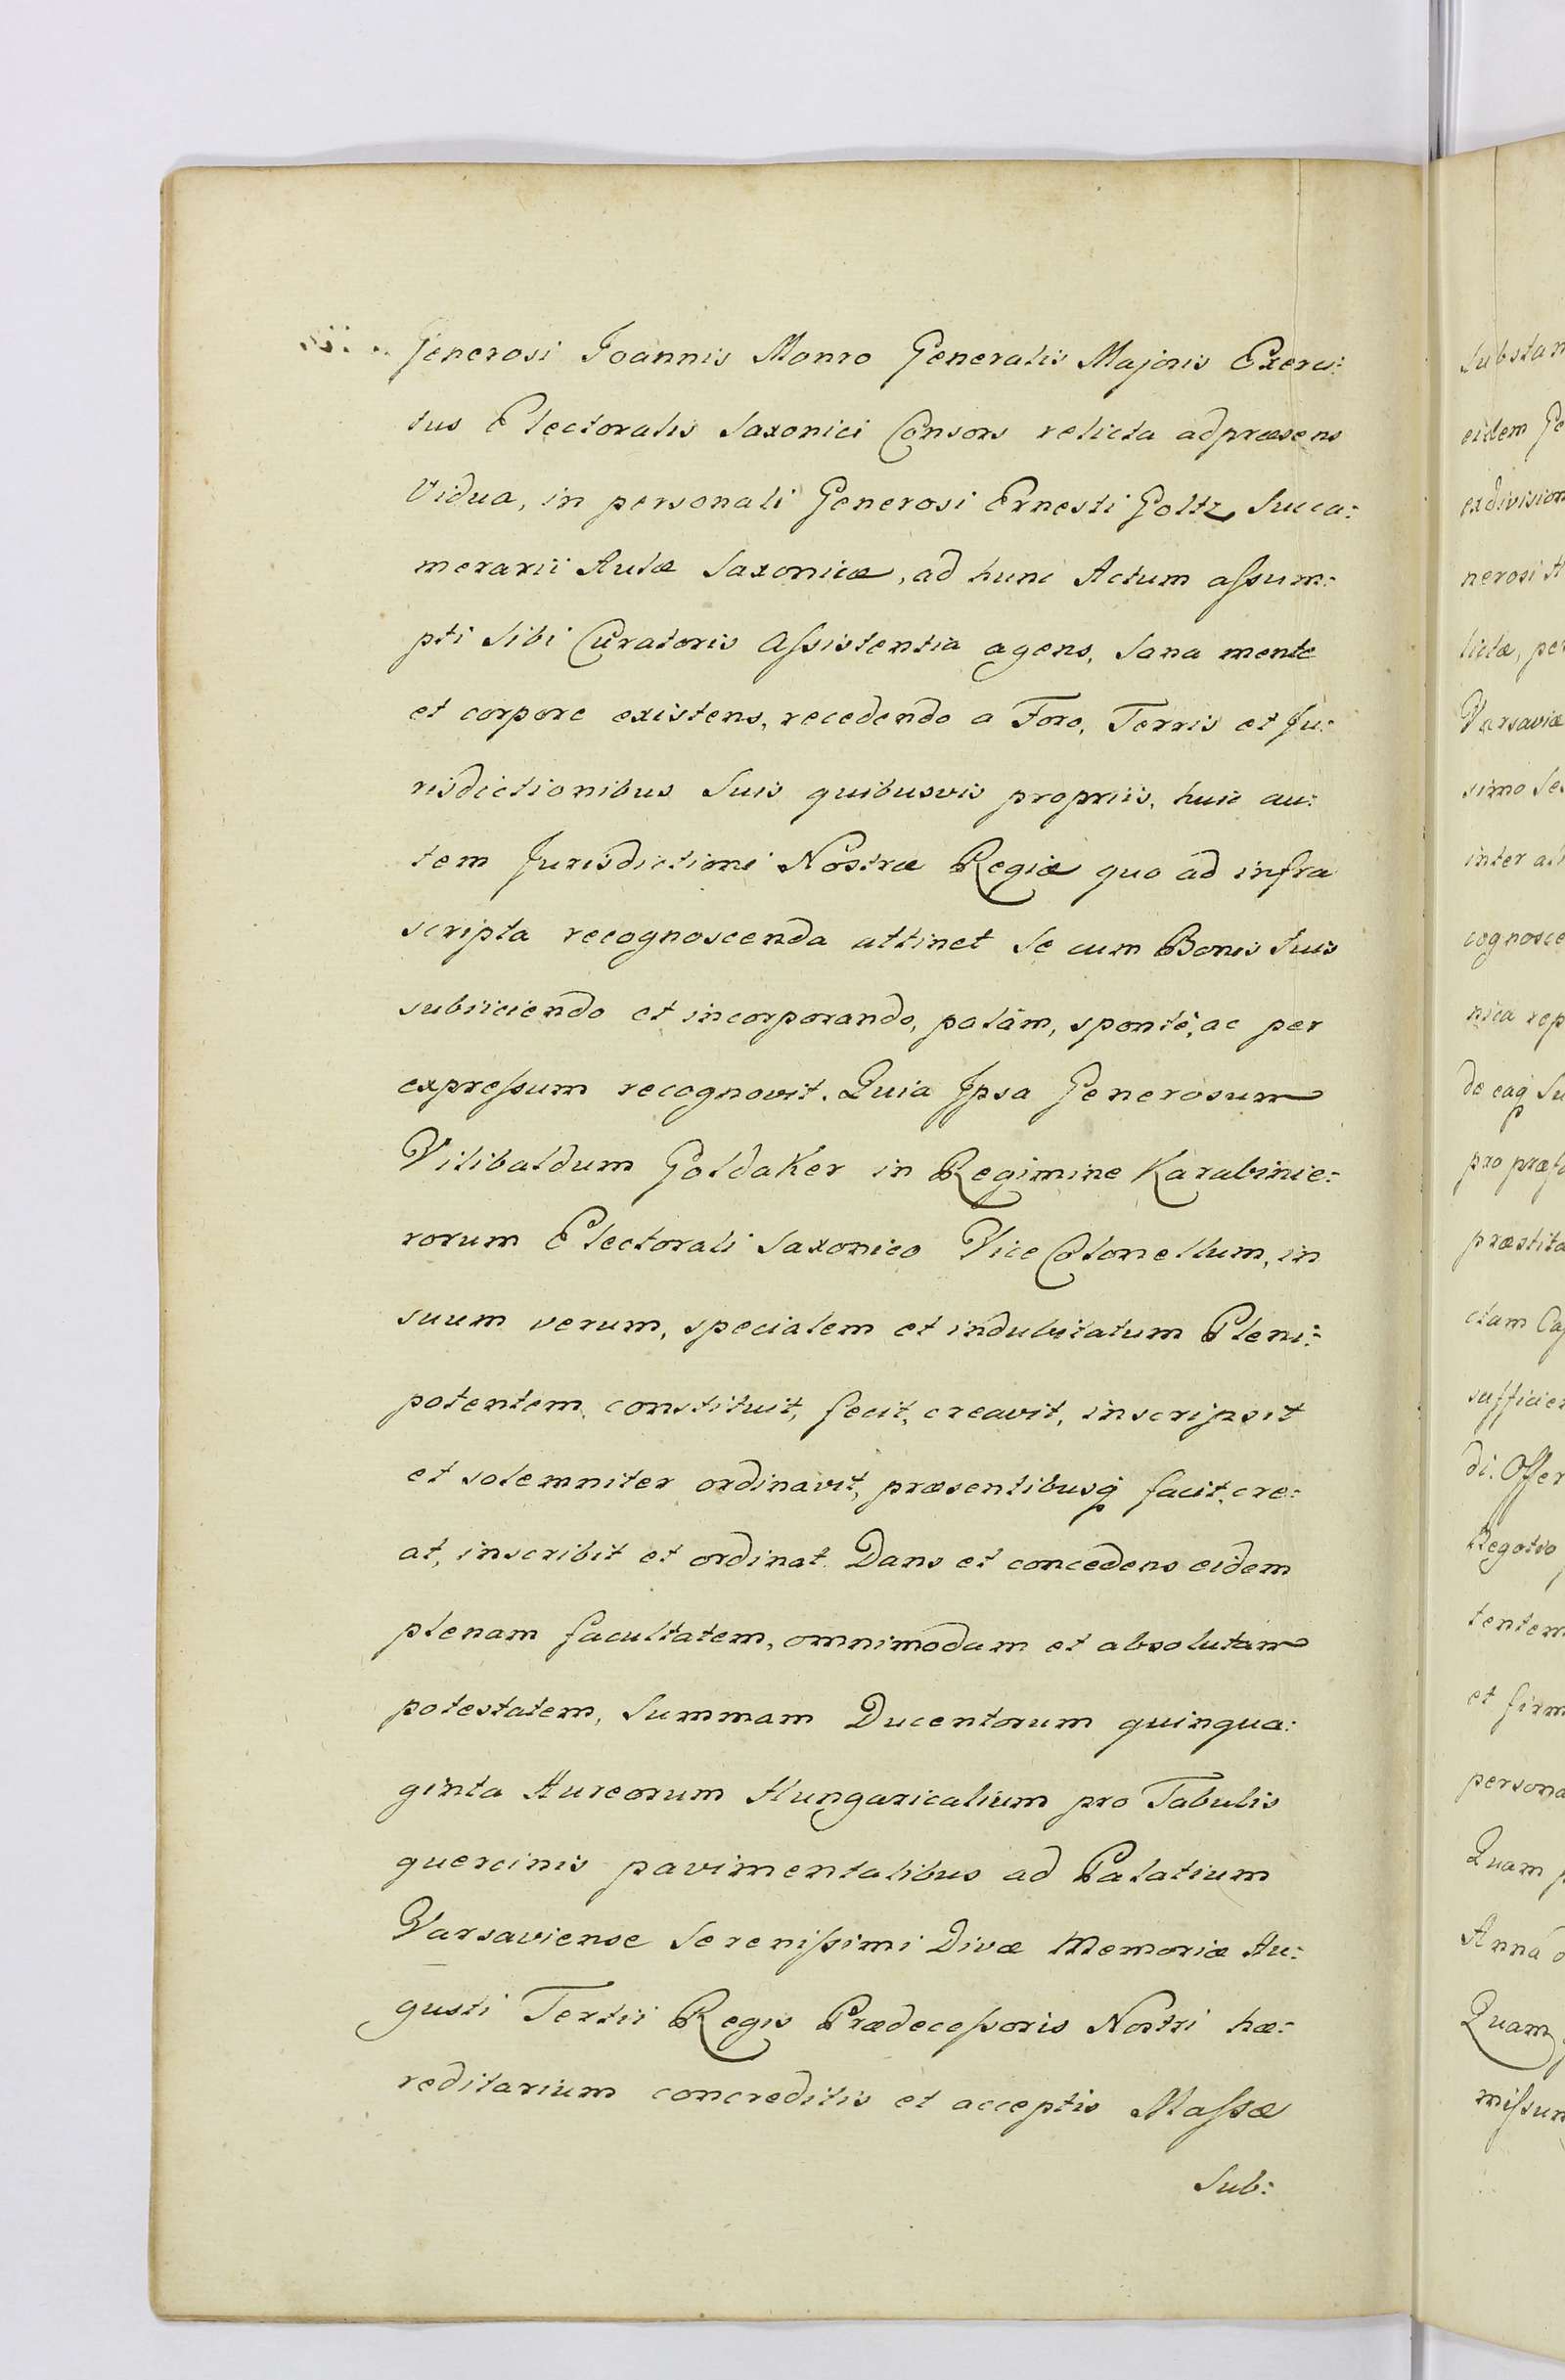 Generosi Joannis Monro Generalis Majoris Exerci:
tus Electoralis Saxonici Consors relicta adpræsens
Vidua, in personali Generosi Ernesti Goltz Succa:
merarii Aulæ Saxonicæ, ad hunc Actum aſsum:
pti sibi Curatoris Aſsistentia agens, Sana mente
et corpore existens, recedendo a Foro, Terris et Ju:
risdictionibus Suis quibusvis propriis, huic au:
tem Jurisdictioni Nostræ Regiæ quo ad infra
scripta recognoscenda attinet Se cum Bonis Suis
subiiciendo et incorporando, palàm, spontè, ac per
expreſsum recognovit. Quia Ipsa Generosum
Vilibaldum Goldaker in Regimine Karabinie:
rorum Electorali Saxonico Vice Colonellum, in
suum verum, specialem et indubitatum Pleni:
potentem constituit, fecit, creavit, inscripsit
et solemniter ordinavit, præsentibusq facit, cre:
at, inscribit et ordinat. Dans et concedens eidem
plenam facultatem, omnimodam et absolutam
potestatem, Summam Ducentorum quinqua:
ginta Aureorum Hungaricalium pro Tabulis
quercinis pavimentalibus ad Palatium
Varsaviense Sereniſsimi Divæ Memoriæ Au:
gusti Tertii Regis Prædeceſsoris Nostri hæ:
reditarium concreditis et acceptis Maſsæ
Sub:
Substan
eidem Ge
exdivision
nerosi A
lictæ, per
Varsaviæ
simo Se
inter ali
cognosce
nica rep
de eaq Su
pro præf
præstita
ctam Ca
sufficien
di. Offer
Negotio
tentem
et firm
persona
Quam
Anna
Quam
miſsum